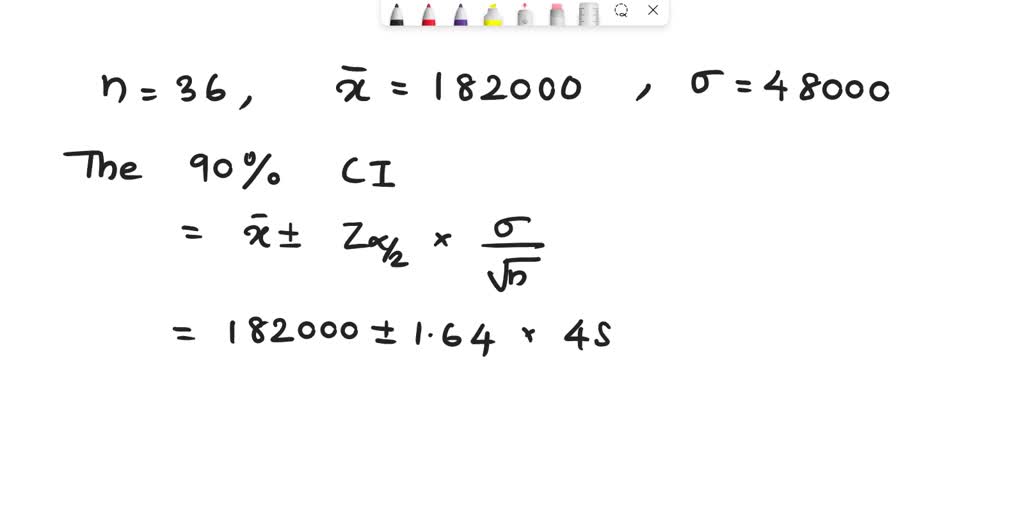 n = 36, x̄ = 182000, σ = 48000
The 90% CI
= x̄ ± Zα/2 × σ/√n
= 182000 ± 1.64 × 4S